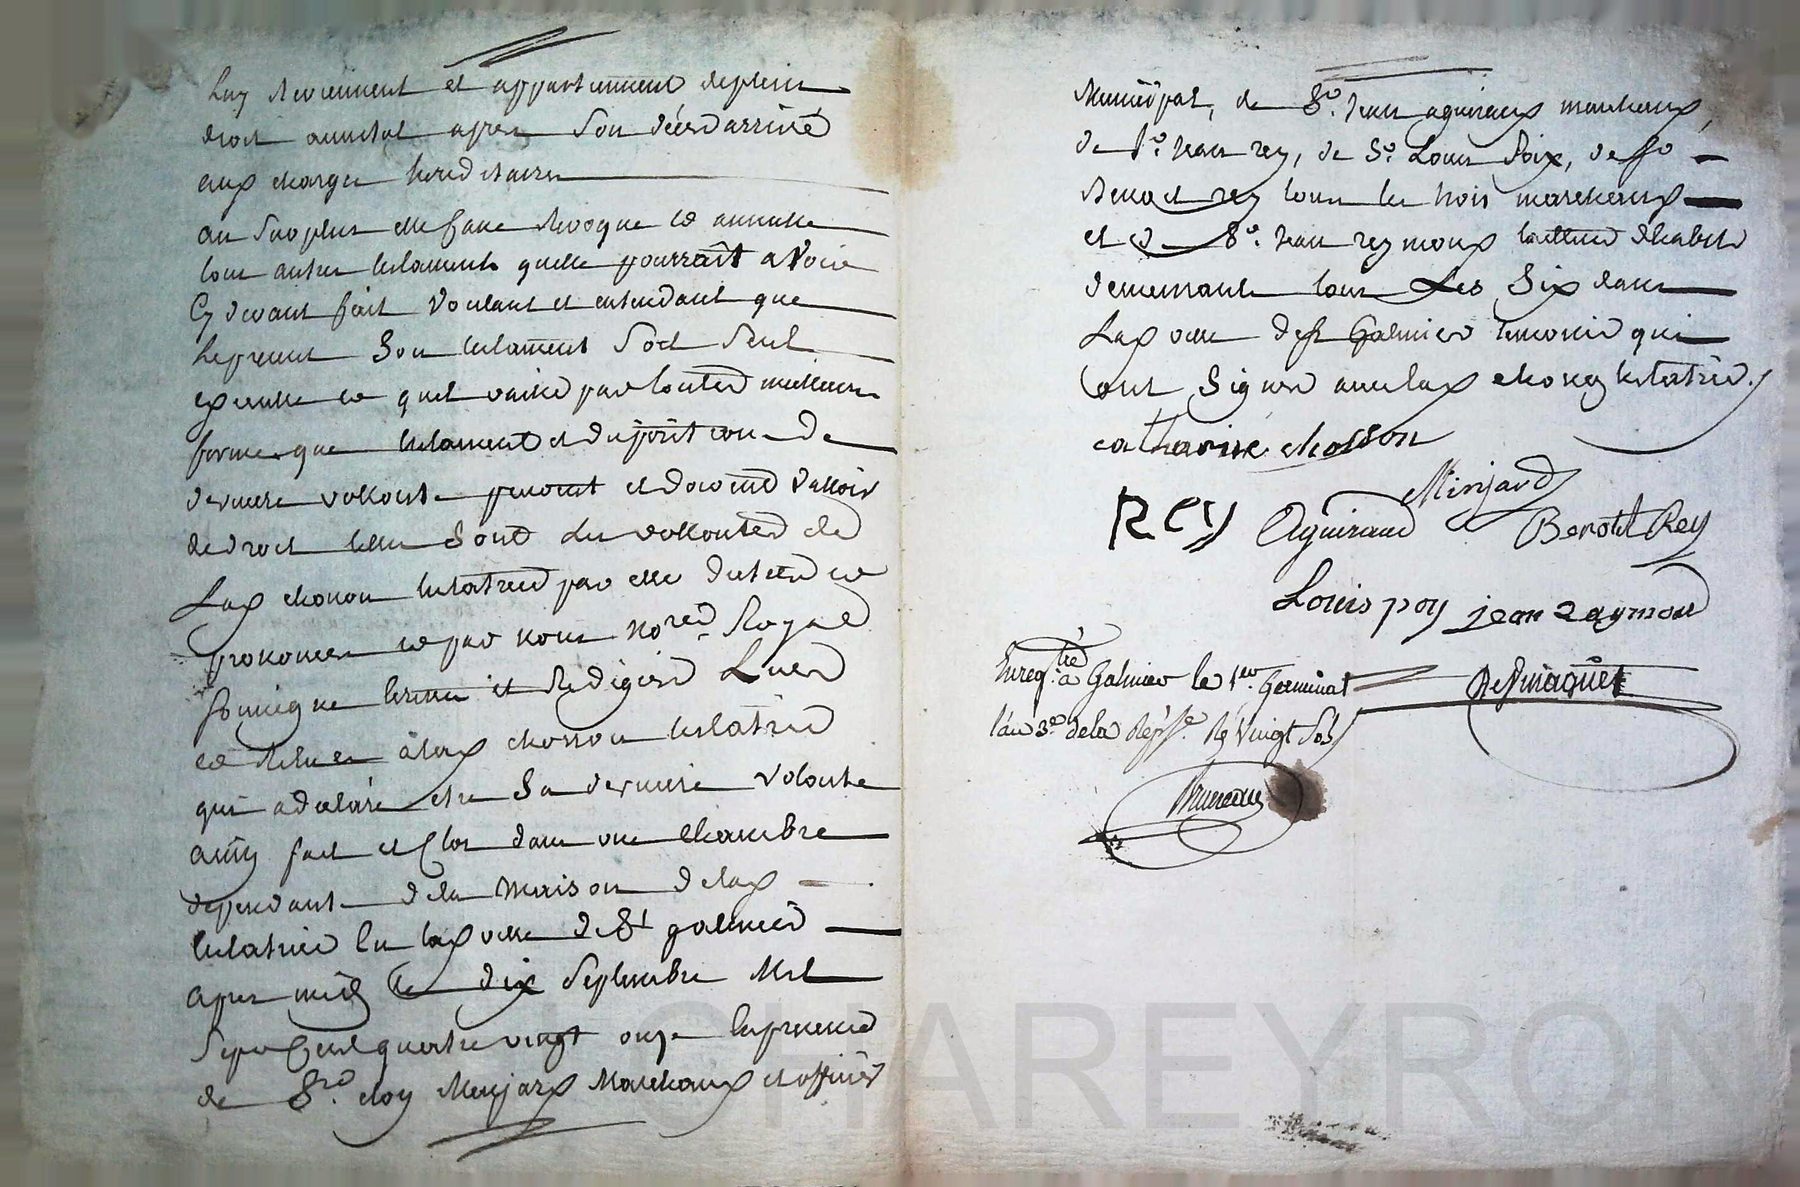 luy reviennent et appartiennent de plein
droit aussitot apres son décéd arrivé
aux charges hereditaires
au surplus elle casse revoque et annulle
tous autres testaments quelle pourrait avoir
cy devant fait voulant et entendant que
le present son testament soit seul
execute et quil vaille par toutes meilleures
formes que testament et disposition de
derniere vollonte peuvent et doivent valloir
de droit telles sont les vollontes de
lad chosson testatrice par elle dictées et
prononcées et par nous no.re Royal
soussigne ecrittes et redigées Lues
et relues a lad chosson testatrice
qui a declaré etre sa derniere volonte
ainsy fait et clos dans une chambre
dependante de la maison de lad
testatrice en lad ville de St galmier
apres midy le dix septembre Mil
sept cent quatre vingt onze en presence
de S.r eloy Minjard Marchand et officier
Municipal, de S.r Jean aguiraud marchand,
de S.r Jean rey, de S.r Louis Poix, de S.r
Benoit rey tous les trois marchands
et de S.r Jean reymond
demeurants tous Les Six dans
Lad ville de St Galmier temoins qui
ont Signés avec lad chosson testatrice.
catharine chosson
Minjard
Rey Aguiraud Benoit Rey
Louis poy jean Raymond
Enreg.tré à Galmier le 1.er Germinal
l'an 3.e de la Rép.e Ré Vingt Sols
CHAREYRON